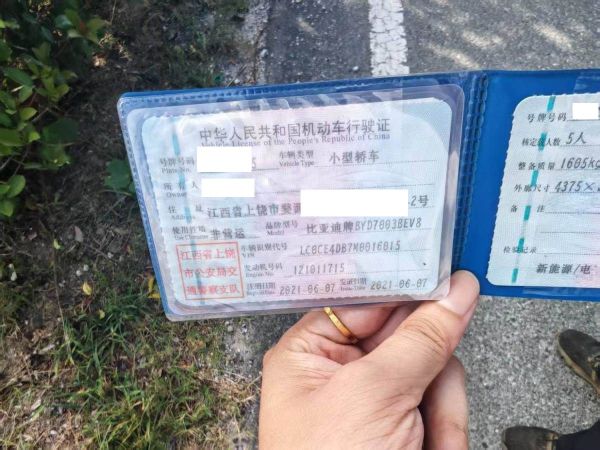 中华人民共和国机动车行驶证
Vehicle License of the People's Republic of China
号牌号码 5 车辆类型 小型轿车
Plate No. Vehicle Type
所有人
住址 江西省上饶市婺源 2号
使用性质 非营运 品牌型号 比亚迪牌BYD7003BEV8
Model
江西省上饶市公安局交通警察支队
车辆识别代号 LC0CE4DB7M0016015
发动机号码 121011715
Engine No.
注册日期 2021-06-07 发证日期 2021-06-07
Register Date Issue Date
号牌号码
核定载人数 5人
整备质量 1605kg
外廓尺寸 4375×
检验记录
新能源/电